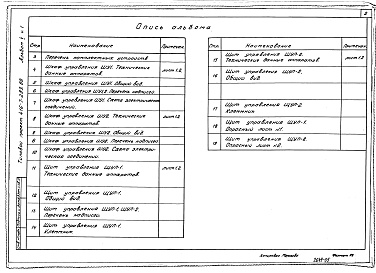 2
Опись альбома
Стр.
Наименование
Примечан.
3
Перечень комплектных устройств
4
Шкаф управления ШУ1. Технические
данные аппаратов.
лист 1.2
5
Шкаф управления ШУ1. Общий вид.
6
Шкаф управления ШУ1,2. Перечень надписей
7
Шкаф управления ШУ1. Схема электрических
соединений.
8
Шкаф управления ШУ2. Технические
данные аппаратов.
лист 1.2
9
Шкаф управления ШУ2. Общий вид.
Шкаф управления ШУ2. Перечень надписей
10
Шкаф управления ШУ2. Схема электри-
ческая соединений.
11
Щит управления ЩУП-1.
Технические данные аппаратов
лист 1.2
12
Щит управления ЩУП-1.
Общий вид.
13
Щит управления ЩУП-1, ЩУП-2.
Перечень надписей
14
Щит управления ЩУП-1.
Клеммник
Стр.
Наименование
Примечан.
15
Щит управления ЩУП-2.
Технические данные аппаратов
лист 1.2
16
Щит управления ЩУП-2.
Общий вид
17
Щит управления ЩУП-2
Клеммник
18
Щит управления ЩУП-1.
Опросный лист №1.
19
Щит управления ЩУП-2.
Опросный лист №2.
Типовой проект
Альбом
Копировал
Формат